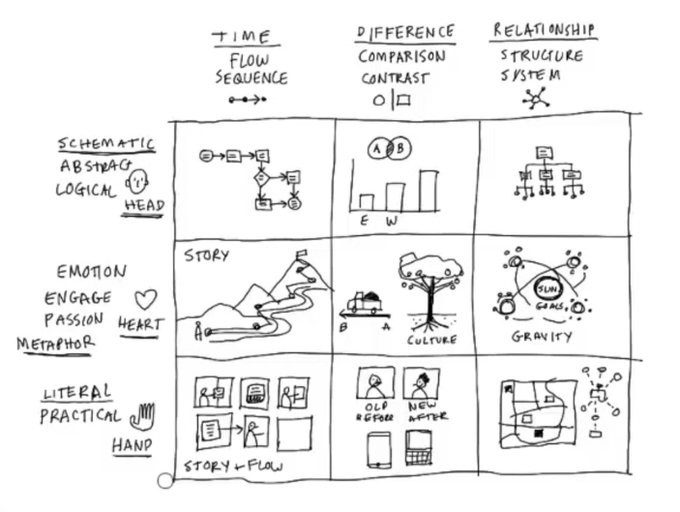 TIME
FLOW
SEQUENCE
DIFFERENCE
COMPARISON
CONTRAST
RELATIONSHIP
STRUCTURE
SYSTEM
SCHEMATIC
ABSTRACT
LOGICAL
HEAD
A B
E W
EMOTION
ENGAGE
PASSION
HEART
METAPHOR
STORY
B A
CULTURE
SUN
GOALS
GRAVITY
LITERAL
PRACTICAL
HAND
STORY + FLOW
OLD
BEFORE
NEW
AFTER